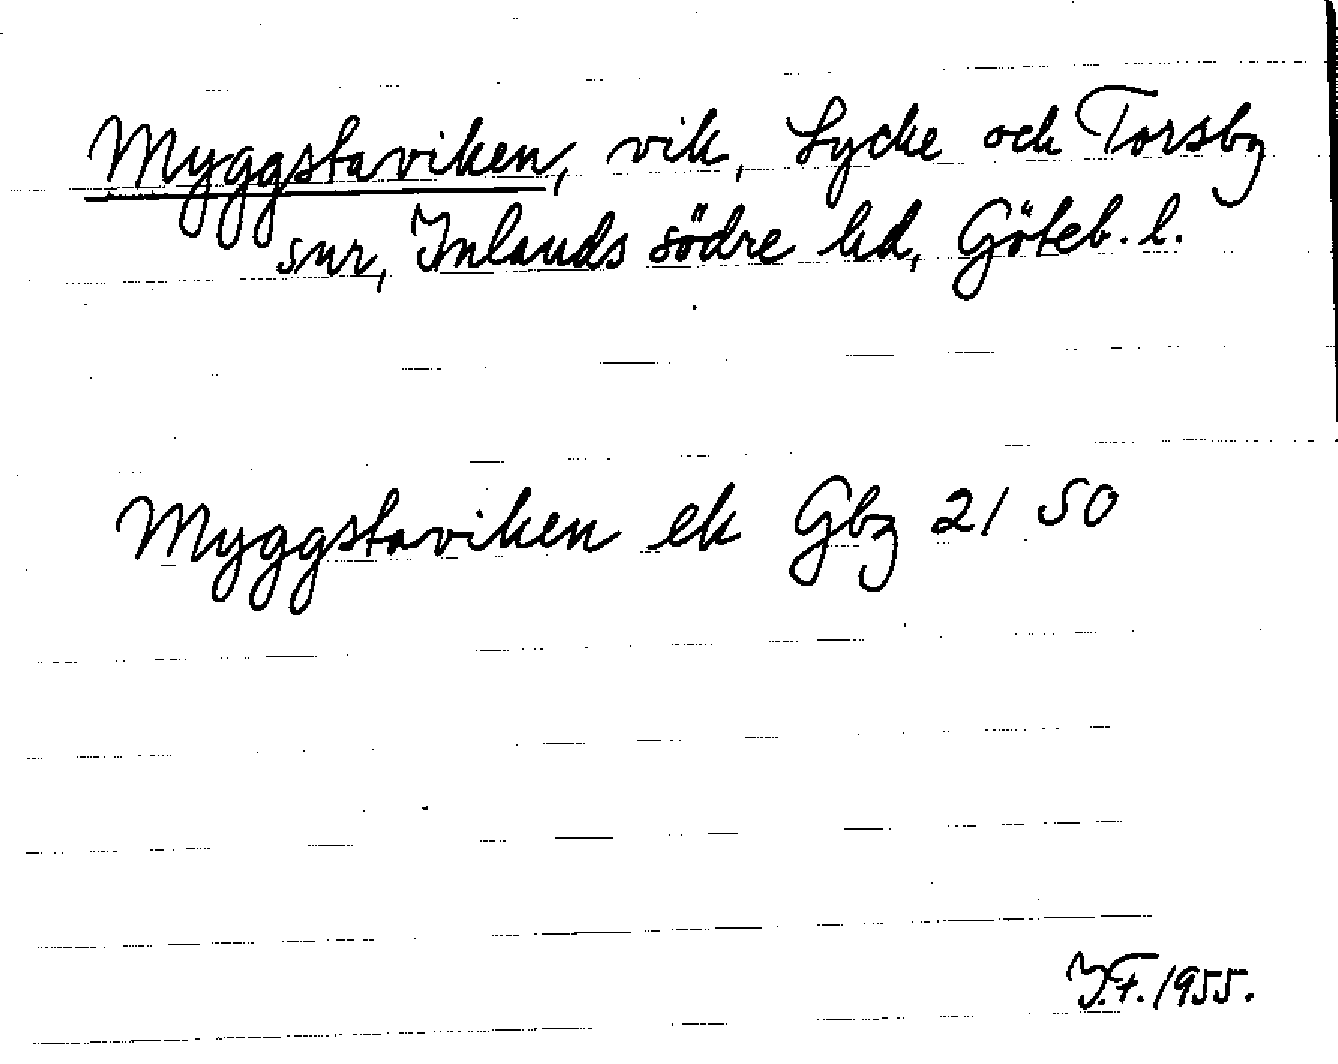 Myggstaviken, vik, Lycke och Torsby
snr, Inlands södre hd, Göteb. l.
Myggstaviken ek Gbg 21 SO
I.F. 1955.